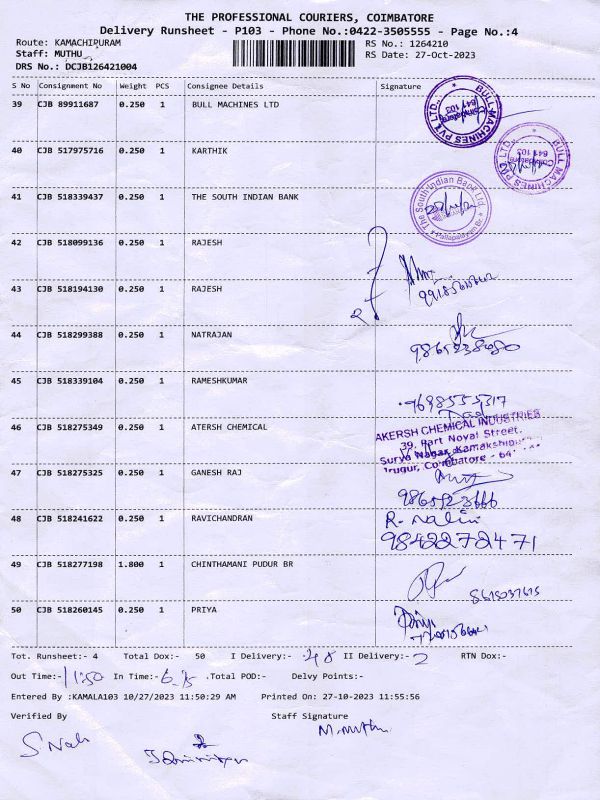 THE PROFESSIONAL COURIERS, COIMBATORE
Delivery Runsheet - P103 - Phone No.:0422-3505555 - Page No.:4
Route: KAMACHIPURAM RS No.: 1264210
Staff: MUTHU RS Date: 27-Oct-2023
DRS No.: DCJB126421004
S No Consignment No Weight PCS Consignee Details Signature
39 CJB 89911687 0.250 1 BULL MACHINES LTD
BULL MACHINES PVT. LTD., Coimbatore 641 103
40 CJB 517975716 0.250 1 KARTHIK
BULL MACHINES PVT. LTD., Coimbatore 641 103
41 CJB 518339437 0.250 1 THE SOUTH INDIAN BANK
The South Indian Bank Ltd. Pallapalayam Br.
42 CJB 518099136 0.250 1 RAJESH
43 CJB 518194130 0.250 1 RAJESH
44 CJB 518299388 0.250 1 NATRAJAN
45 CJB 518339104 0.250 1 RAMESHKUMAR
46 CJB 518275349 0.250 1 ATERSH CHEMICAL
AKERSH CHEMICAL INDUSTRIES
39, Part Noyal Street,
Surya Nagar, Kamakship
Irugur, Coimbatore - 641
47 CJB 518275325 0.250 1 GANESH RAJ
9865923666
48 CJB 518241622 0.250 1 RAVICHANDRAN R. Nalin
9842272471
49 CJB 518277198 1.800 1 CHINTHAMANI PUDUR BR
50 CJB 518260145 0.250 1 PRIYA Priya
Tot. Runsheet:- 4 Total Dox:- 50 I Delivery:- 48 II Delivery:- 2 RTN Dox:-
Out Time:- 11:50 In Time:- Total POD:- Delvy Points:-
Entered By :KAMALA103 10/27/2023 11:50:29 AM Printed On: 27-10-2023 11:55:56
Verified By Staff Signature
M. Muthu